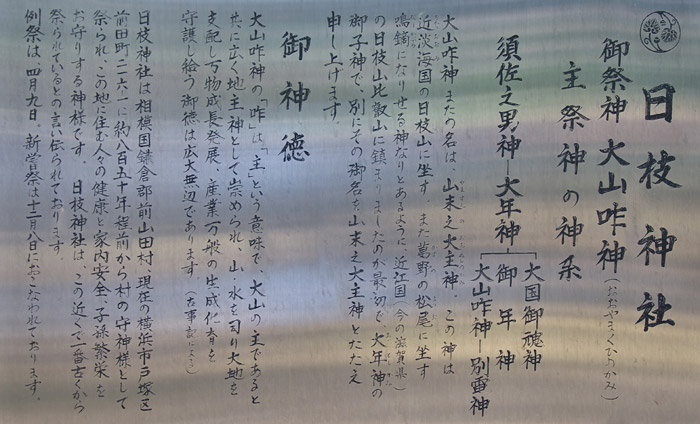 日枝神社
御祭神 大山咋神(おおやまくひのかみ)
主祭神の神系
須佐之男神―大年神
大国御魂神
御年神
大山咋神―別雷神
大山咋神またの名は、山末之大主神、この神は
近淡海国の日枝山に坐す。また葛野の松尾に坐す
鳴鏑になりせる神なりとあるように、近江国(今の滋賀県)
の日枝山比叡山に鎮まりましたのが最初で、大年神の
御子神で、別にその御名を山末之大主神とたたえ
申し上げます。
御神徳
大山咋神の「咋」は「主」という意味で、大山の主であると
共に広く地主神として崇められ、山、水を司り大地を
支配し万物成長発展、産業万般の生成化育を
守護し給う御徳は広大無辺であります。(古事記より)
日枝神社は相模国鎌倉郡前山田村、現在の横浜市戸塚区
前田町二一六一に約八百五十年程前から村の守神様として
祭られ、この地に住む人々の健康と家内安全、子孫繁栄を
お守りする神様です。日枝神社は、この近くで一番古くから
祭られているとの言い伝えられております。
例祭は、四月九日、新嘗祭は十二月八日におこなわれております。